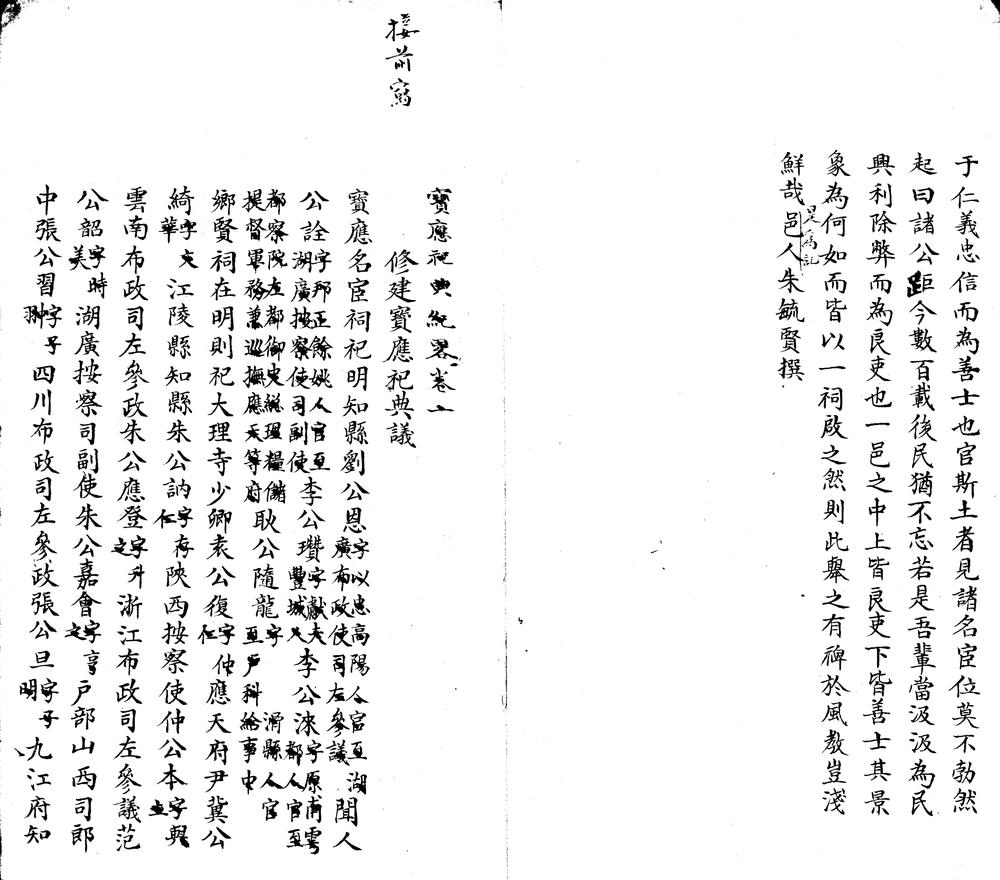 于仁義忠信而為善士也官斯土者見諸名宦位莫不勃然
起曰諸公距今數百載後民猶不忘若是吾輩當汲汲為民
興利除弊而為良吏也一邑之中上皆良吏下皆善士其景
象為何如而皆以一祠啟之然則此舉之有裨於風教豈淺
鮮哉是為記邑人朱毓賢撰
接前寫
寶應祀典紀畧卷上
修建寶應祀典議
寶應名宦祠祀明知縣劉公恩字以忠高陽人官至湖廣布政使司左參議聞人
公詮字邦正餘姚人官至湖廣按察使司副使李公瓚字獻夫豐城人李公淶字原甫雩都人官至
都察院左都御史總理糧儲提督軍務兼巡撫應天等府耿公隨龍字滑縣人官至戶科給事中
鄉賢祠在明則祀大理寺少卿袁公復字仲仁應天府尹冀公
綺字文華江陵縣知縣朱公訥字存仁陝西按察使仲公本字興立
雲南布政司左參政朱公應登字升之浙江布政司左參議范
公韶字時美湖廣按察司副使朱公嘉會字亨之戶部山西司郎
中張公習字子翀四川布政司左參政張公旦字子明九江府知